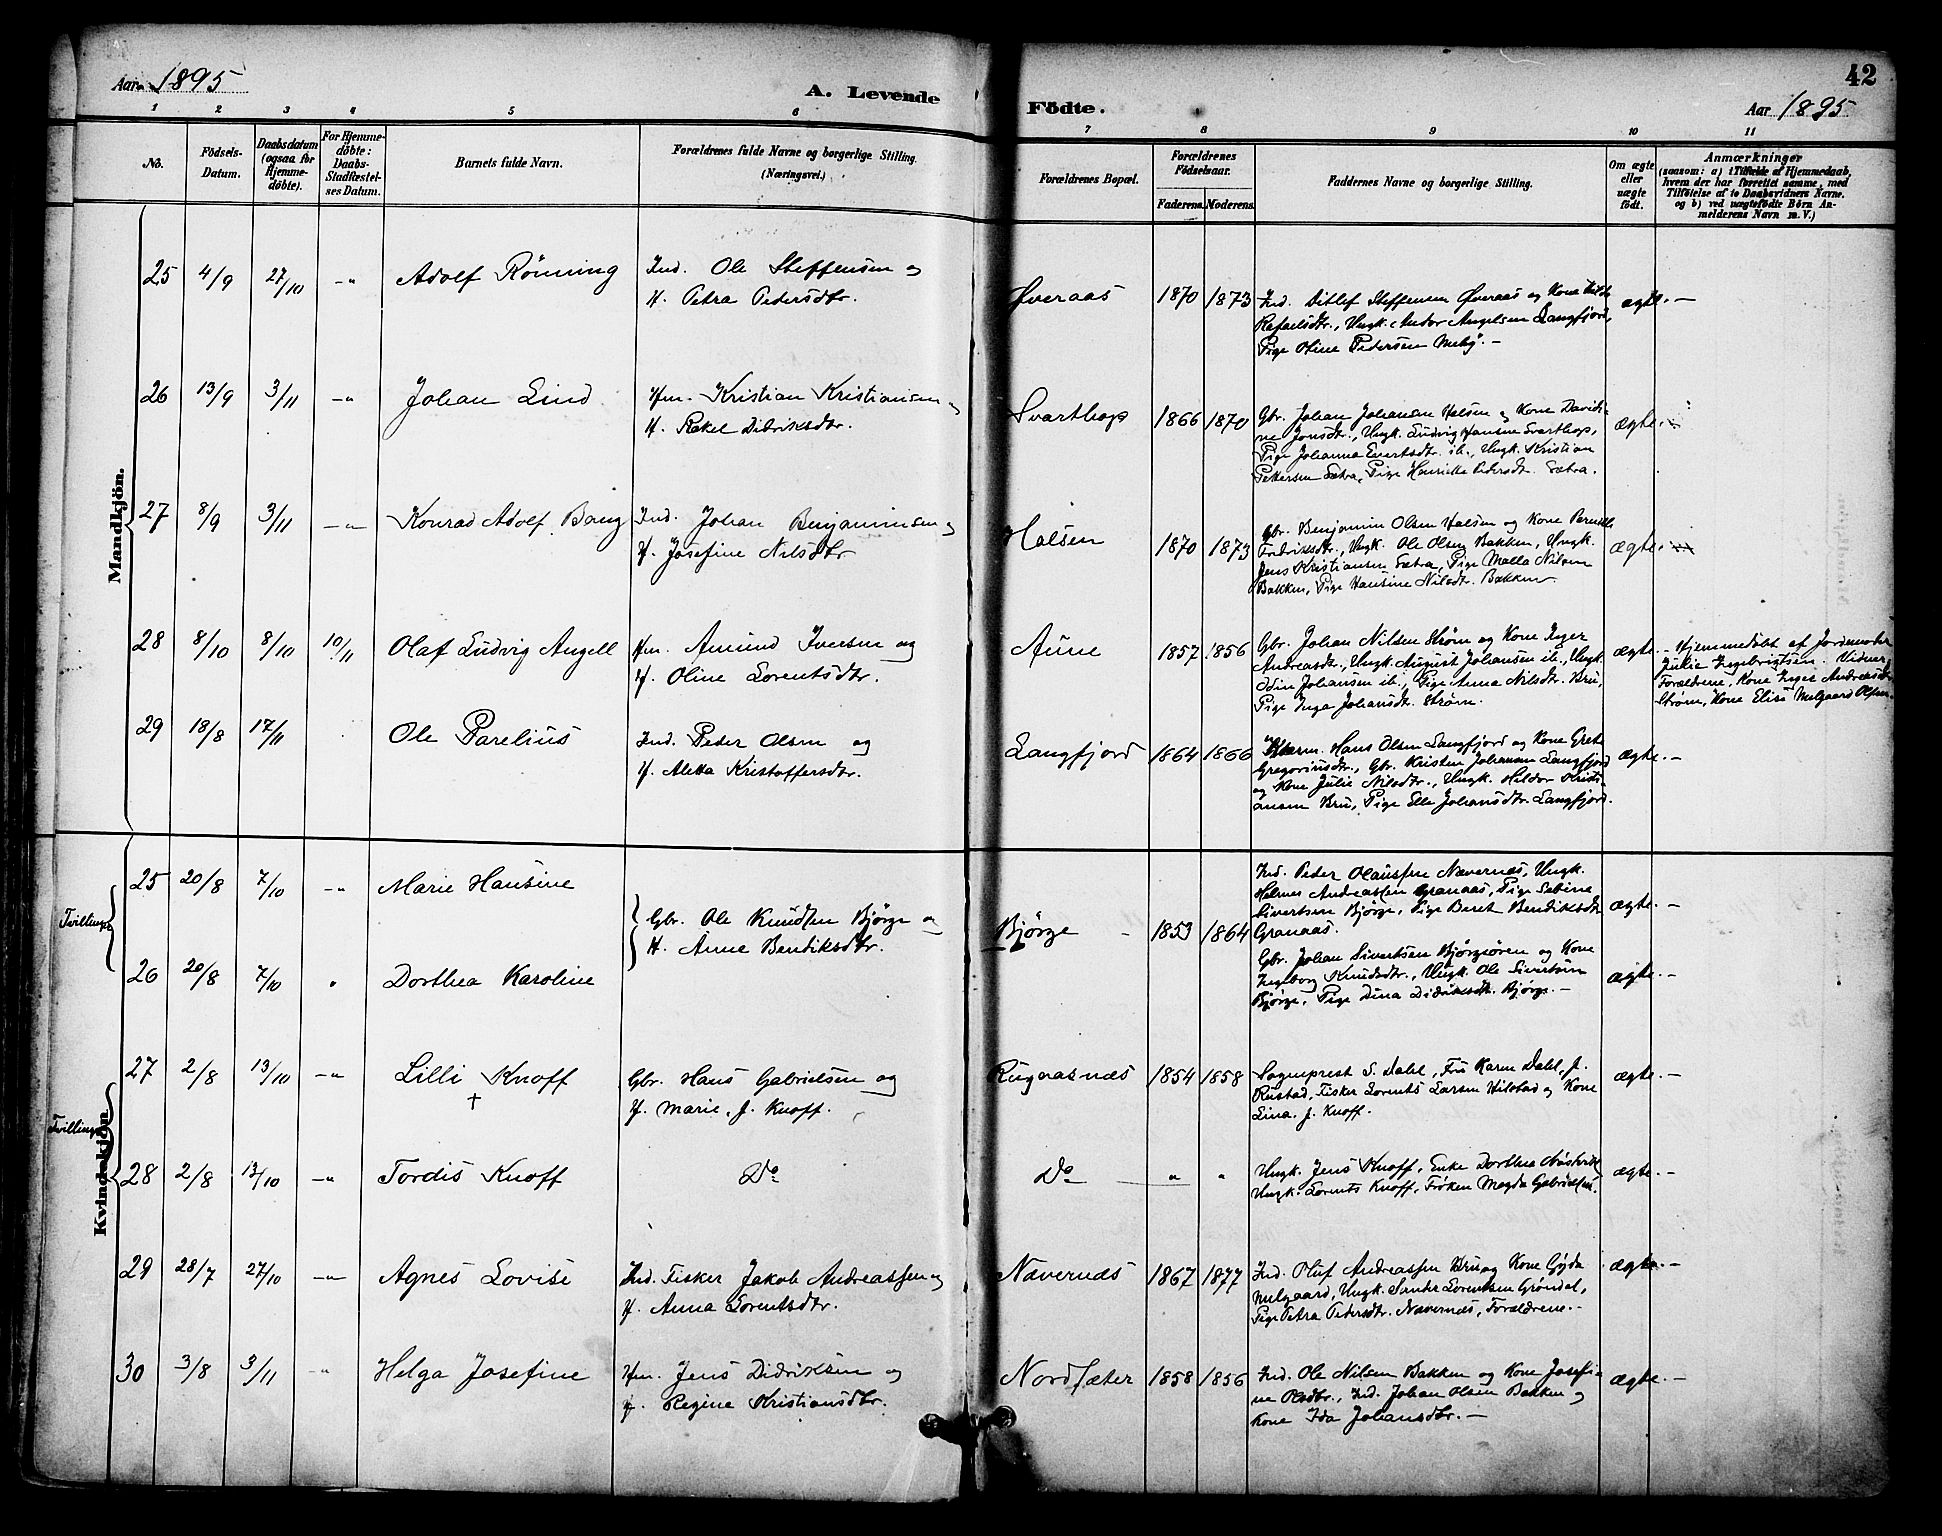 Aar 1895
A. Levende
Födte.
42
Aar 1895
1 2 3 4 5 6 7 8 9 10 11
No.
Födsels-
Datum.
Daabsdatum
(ogsaa for
Hjemme-
döbte).
For Hjemme-
döbte:
Daabs-
Stadfæstel-
ses Datum.
Barnets fulde Navn.
Forældrenes fulde Navne og borgerlige Stilling.
(Næringsvei.)
Forældrenes Bopæl.
Forældrenes
Födselsaar.
Faderens. Moderens.
Faddernes Navne og borgerlige Stilling.
Om ægte
eller
uægte
födt.
Anmærkninger
(saasom: a) i Tilfælde af Hjemmedaab,
hvem der har forrettet samme, med
Tilföielse af to Daabsvidners Navne,
og b) ved uægtefödte Börn An-
melderens Navn m. V.)
Mandkjön.
25 4/9 27/10 -"- Adolf Rönning
Ind. Ole Steffensen og
H. Petra Pedersdtr.
Øveraas 1870 1873
Ind. Ditlef Steffensen Øveraas og Kone
Rafaelsdtr., Ungk. Andor Angelsen Langfjord,
Pige Oline Pedersen
ægte. -
26 13/9 3/11 -"- Johan Lind
Hm. Kristian Kristiansen og
H. Rakel Didriksdtr.
Svarthop 1866 1870
Gbr. Johan Johansen Halsen og Kone Davidi-
ne Jonsdtr., Ungk. Ludvig Hansen Svarthop,
Pige Johanna Evertsdtr. ib., Ungk. Kristian
Pettersen Sætra, Pige Henrikke Pedersdtr. Sætra.
ægte.
27 8/9 3/11 -"- Konrad Adolf Bang
Ind. Johan Benjaminsen og
H. Josefine Nilsdtr
Halsen 1870 1873
Gbr. Benjamin Olsen Halsen og Kone
Fredriksdtr., Ungk. Ole Olsen Bakken, Ungk.
Jens Kristiansen Sætra, Pige Malla Nilsen
Bakken, Pige Hansine Nilsdtr. Bakken
ægte.
28 8/10 8/10 10/11 Olaf Ludvig Angell
Hm. Amund Iversen og
H. Oline Lorentsdtr.
Aune 1857 1856
Gbr. Johan Nilsen Strøm og Kone Inger
Andreasdtr., Ungk. August Johansen ib., Ungk.
Odin Johansen ib., Pige Anna Nilsdtr. Bru,
Pige Inga Johansdtr. Strøm.
ægte.
- Hjemmedöbt af Jordmoder
Julie Ingebrigtsen. Vidner
Forældrene, Kone Inger Andreasdtr
Strøm, Kone Elise Melgaard Olsen.
29 18/8 17/11 Ole Parelius
Ind. Peder Olsen og
H. Aletta Kristoffersdtr.
Langfjord 1864 1866
Hans Olsen Langfjord og Kone Grete
Gregoriusdtr., Gbr. Kristen Johansen Langfjord
og Kone Julie Nilsdtr., Ungk. Hildor Kristi-
ansen Bru, Pige Elle Johansdtr. Langfjord.
ægte. -
Kvindekjön
Tvillinger
25 20/8 7/10 -"- Marie Hansine
Gbr. Ole Knudsen Bjørge og
H. Anne Bendiksdtr.
Bjørge 1853 1864
Ind. Peder Olaussen Nævernæs, Ungk.
Helmer Andreassen Granaas, Pige Sabine
Sivertsen Bjørge, Pige Beret Bendiksdtr
Granaas.
ægte. -
26 20/8 7/10 " Dorthea Karoline
Gbr. Johan Sivertsen Bjørgøren og Kone
Ingeborg Knudsdtr., Ungk. Ole Sivertsen
Bjørge, Pige Dina Didriksdtr. Bjørge. -
ægte. -
Tvillinger
27 2/8 13/10 -"- Lilli Knoff
†
Gbr. Hans Gabrielsen og
H. Marie. J. Knoff.
Rugnasnæs 1854 1858
Sogneprest S. Dahl, Fru Karen Dahl, J.
Rustad, Fisker Lorents Larsen Hilstad og Kone
Lina. J. Knoff.
ægte. -
28 2/8 13/10 -"- Tordis Knoff
Do
Do " "
Ungk. Jens Knoff, Enke Dorthea
Ungk. Lorents Knoff, Frøken Magda Gabrielsen.
ægte. -
29 28/7 27/10 -"- Agnes Lovise
Ind. Fisker Jakob Andreassen og
H. Anna Lorentsdtr.
Nævernæs 1867 1877
Ind. Oluf Andreassen Bru og Kone Gyda
Melgaard, Ungk. Sender Lorentsen Grøndal,
Pige Petra Pedersdtr. Nævernæs, Forældrene. -
ægte. -
30 3/8 3/11 -"- Helga Josefine
Hm. Jens Didriksen og
H. Regine Kristiansdtr.
Nordsæter 1858 1856
Ind. Ole Nilsen Bakken og Kone Josefi-
ne Olsdtr., Ind. Johan Olsen Bakken og
Kone Ida Johansdtr. -
ægte. -